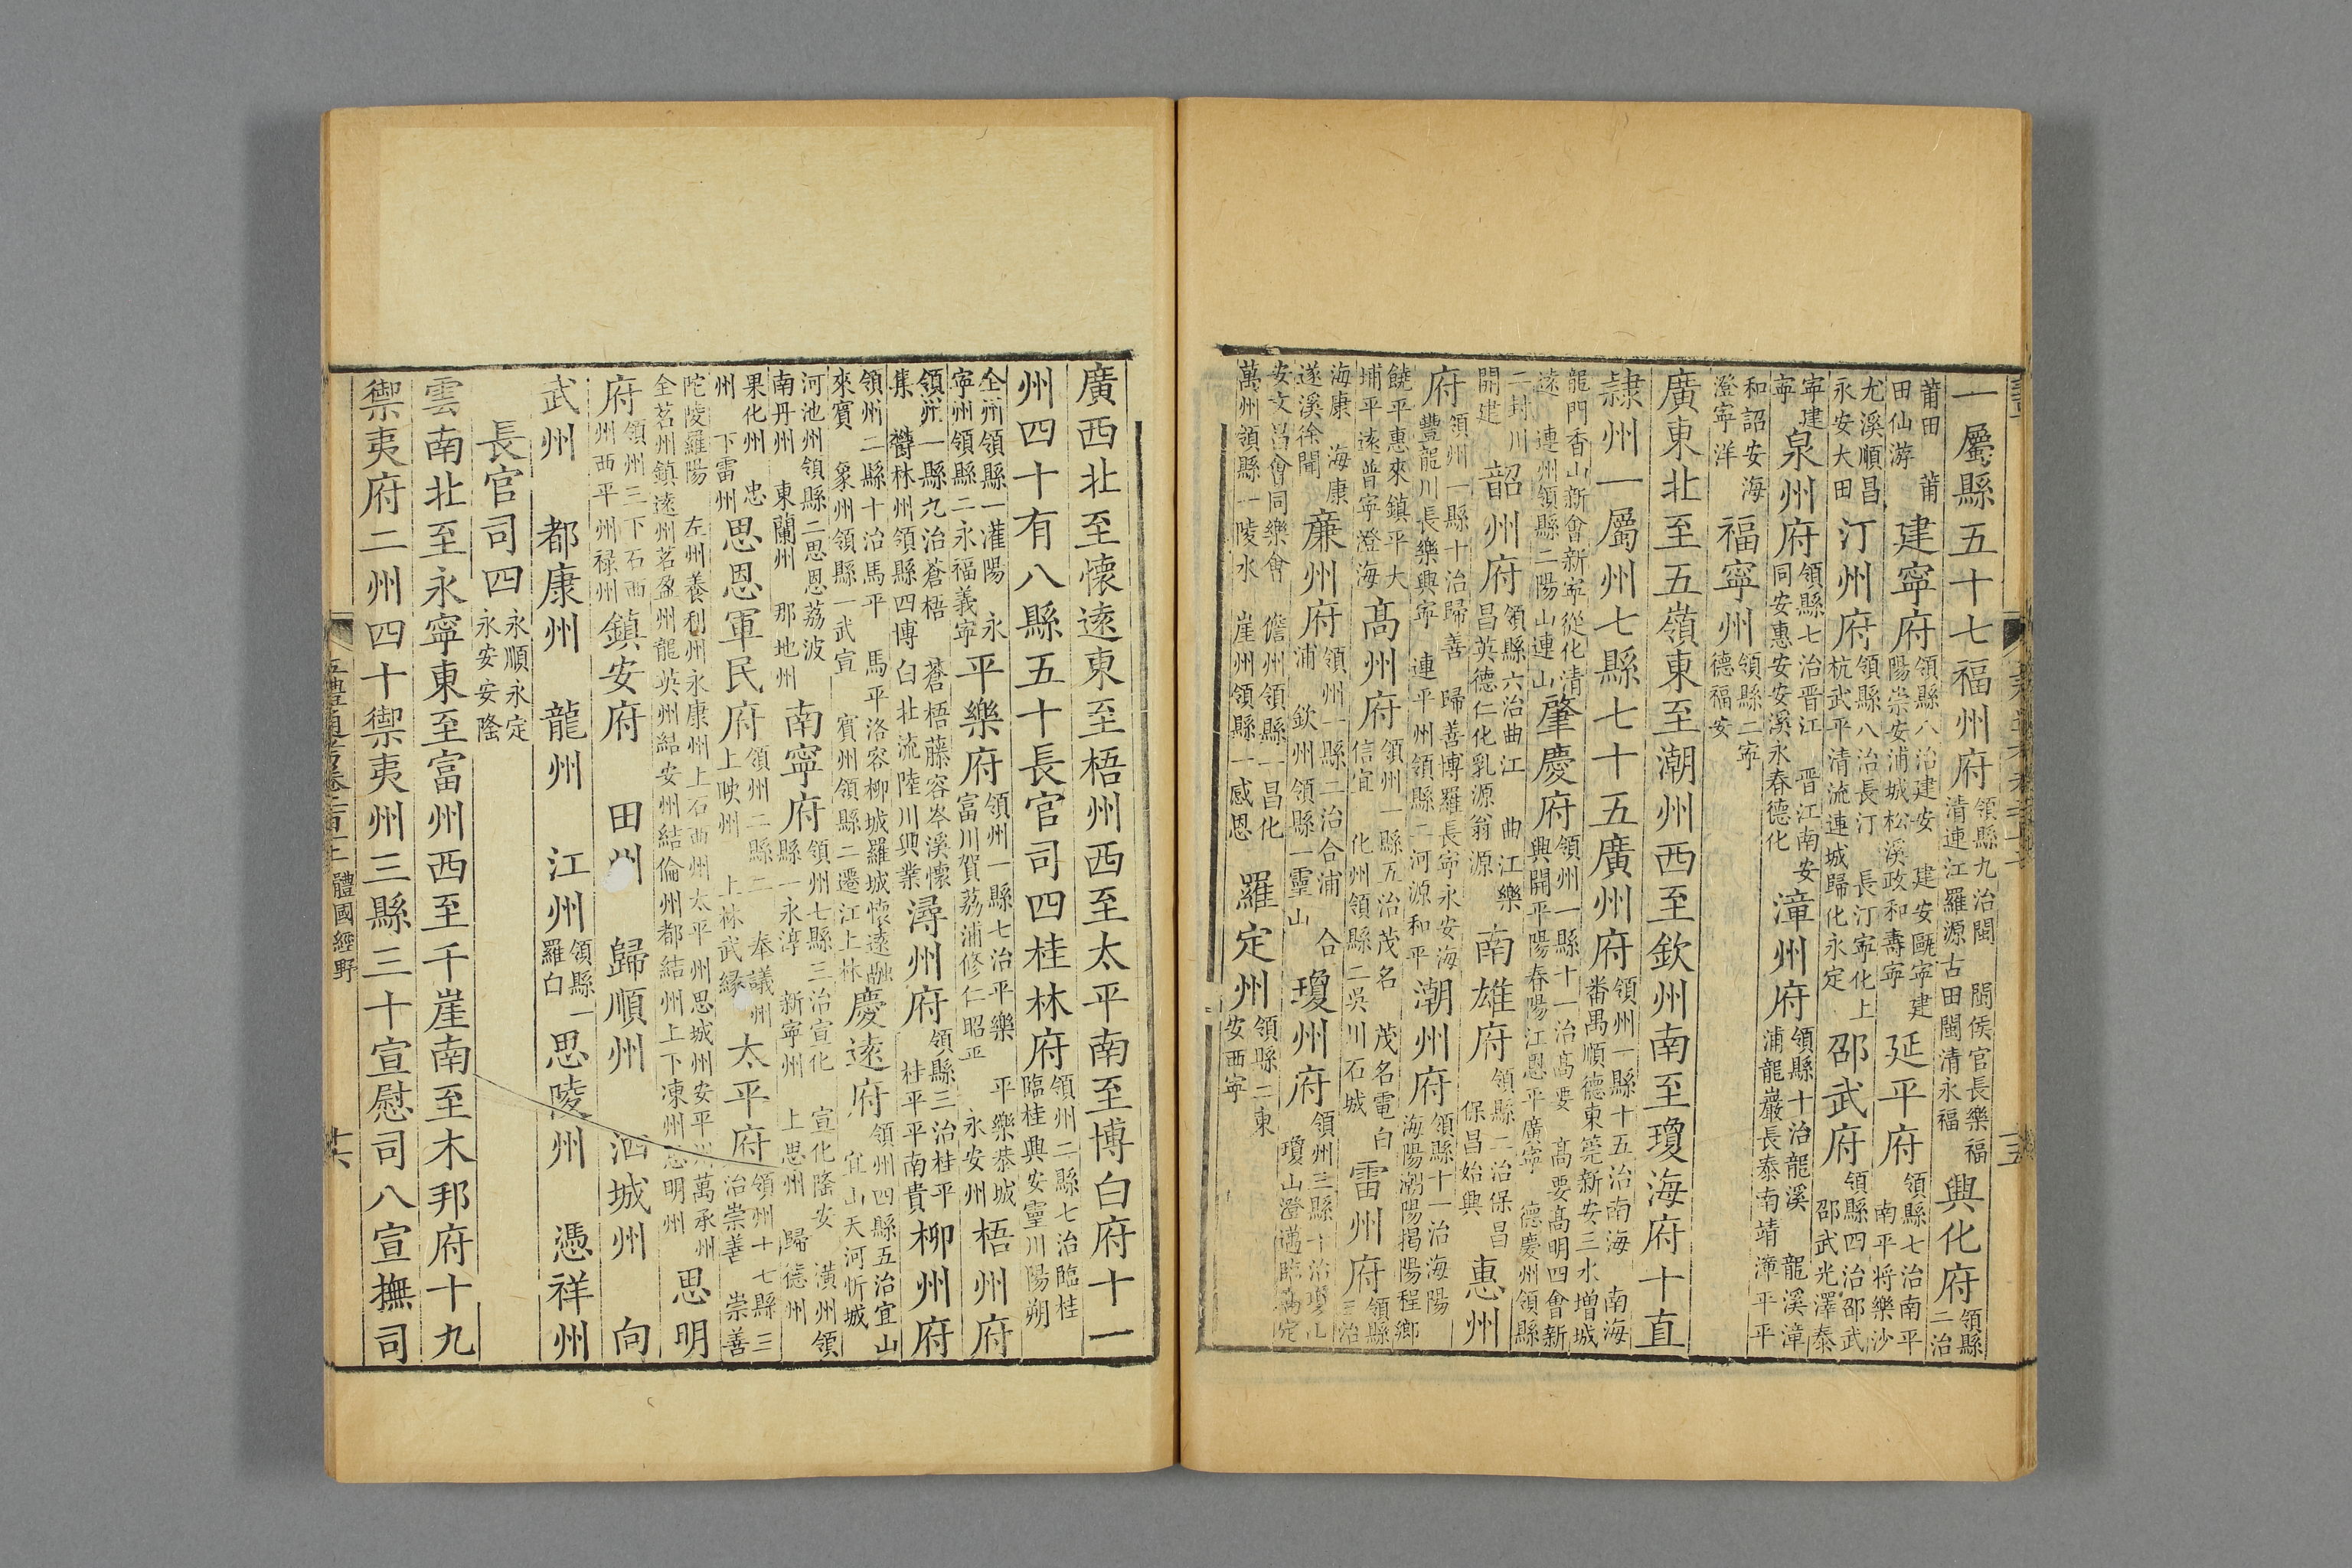 一屬縣五十七福州府領縣九治閩　閩侯官長樂福清連江羅源古田閩清永福興化府領縣二治
莆田　莆田仙游建寧府領縣八治建安　建安甌寧建陽崇安浦城松溪政和壽寧延平府領縣七治南平南平將樂沙
尤溪順昌永安大田汀州府領縣八治長汀　長汀寧化上杭武平清流連城歸化永定邵武府領縣四治邵武邵武光澤泰
寧建寧泉州府領縣七治晉江　晉江南安同安惠安安溪永春德化漳州府領縣十治龍溪　龍溪漳浦龍巖長泰南靖漳平平
和詔安海澄寧洋福寧州領縣二寧德福安
廣東北至五嶺東至潮州西至欽州南至瓊海府十直
隸州一屬州七縣七十五廣州府領州一縣十五治南海　南海番禺順德東莞新安三水增城
龍門香山新會新寧從化清遠　連州領縣二陽山連山肇慶府領州一縣十一治高要　高要高明四會新興開平陽春陽江恩平廣寧　德慶州領縣
二封川開建韶州府領縣六治曲江　曲江樂昌英德仁化乳源翁源南雄府領縣二治保昌保昌始興惠州
府領州一縣十治歸善　歸善博羅長寧永安海豐龍川長樂興寧　連平州領縣二河源和平潮州府領縣十一治海陽海陽潮陽揭陽程鄉
饒平惠來鎮平大埔平遠普寧澄海高州府領州一縣五治茂名　茂名電白信宜　化州領縣二吳川石城雷州府領縣三治
海康　海康遂溪徐聞廉州府領州一縣二治合浦　合浦　欽州領縣一靈山瓊州府領州三縣十治瓊山瓊山澄邁臨高定
安文昌會同樂會　儋州領縣一昌化萬州領縣一陵水　崖州領縣一感恩羅定州領縣二東安西寧
廣西北至懷遠東至梧州西至太平南至博白府十一
州四十有八縣五十長官司四桂林府領州二縣七治臨桂臨桂興安靈川陽朔
全州領縣一灌陽　永寧州領縣二永福義寧平樂府領州一縣七治平樂　平樂恭城富川賀荔浦修仁昭平　永安州梧州府
領州一縣九治蒼梧　蒼梧藤容岑溪懷集　鬱林州領縣四博白北流陸川興業潯州府領縣三治桂平桂平平南貴柳州府
領州二縣十治馬平　馬平洛容柳城羅城懷遠融來賓　象州領縣一武宣　賓州領縣二遷江上林慶遠府領州四縣五治宜山宜山天河忻城
河池州領縣二思恩荔波南丹州　東蘭州　那地州南寧府領州七縣三治宣化　宣化隆安　橫州領縣一永淳　新寧州　上思州　歸德州
果化州　忠州　下雷州思恩軍民府領州二縣二　奉議州上映州　上林武緣太平府領州十七縣三治崇善　崇善
陀陵羅陽　左州養利州永康州上石西州太平州思城州安平州萬承州全茗州鎮遠州茗盈州龍英州結安州結倫州都結州上下凍州思明州思明
府領州三下石西州西平州祿州鎮安府　田州　歸順州　泗城州　向
武州　都康州　龍州　江州領縣一羅白思陵州　憑祥州
長官司四永順永定永安安隆
雲南北至永寧東至富州西至千崖南至木邦府十九
禦夷府二州四十禦夷州三縣三十宣慰司八宣撫司
體國經野